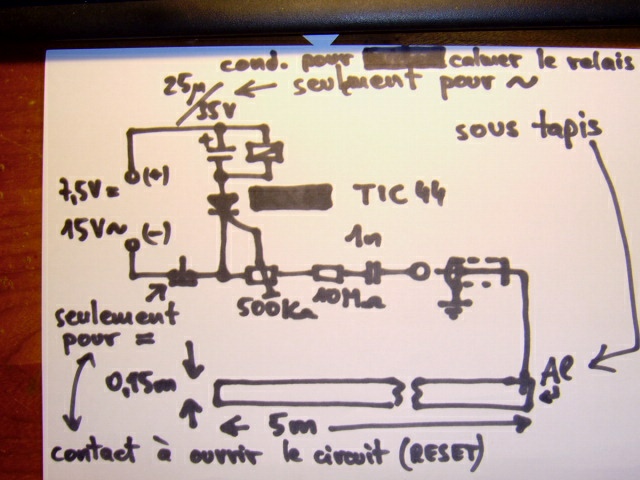 cond. pour calmer le relais
25µ/35V ← seulement pour ~
sous tapis
+
7,5V = (+)
TIC 44
15V~ (-)
1n
500KΩ 10MΩ
seulement
pour =
0,15m
Al
← 5m →
contact à ouvrir le circuit (RESET)